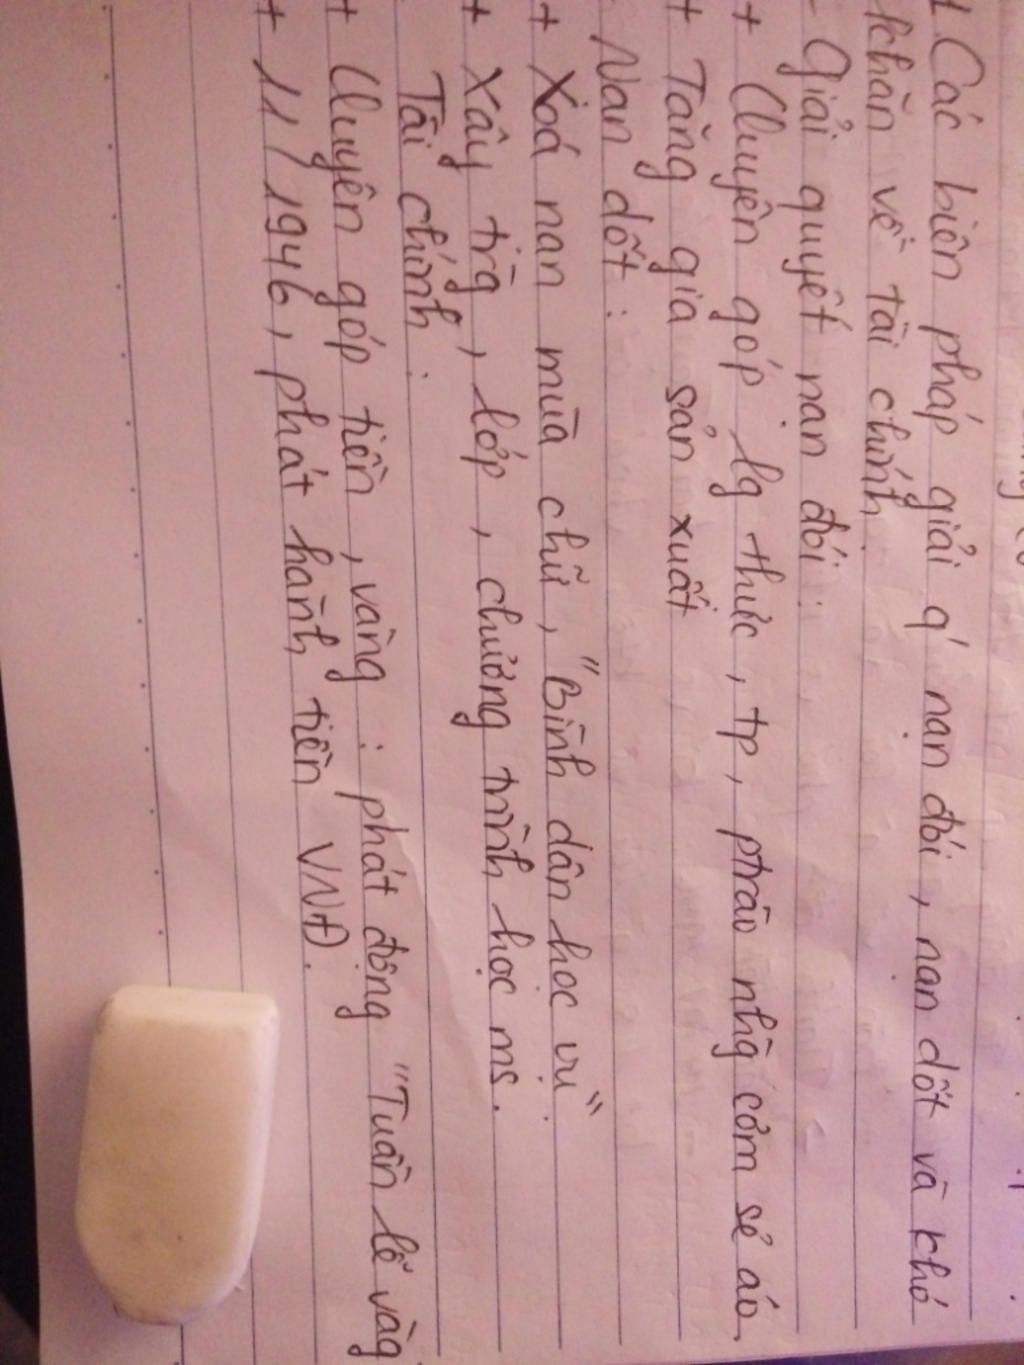 1. Các biện pháp giải q' nạn đói, nạn dốt và khó
khăn về tài chính.
- Giải quyết nạn đói:
+ Quyên góp lg thực, tp, ptrào nhg cơm sẻ áo.
+ Tăng gia sản xuất
- Nạn dốt:
+ Xoá nạn mùa chữ, "Bình dân học vụ".
+ Xây trg, lớp, chương trình học ms.
- Tài chính:
+ Quyên góp tiền, vàng: phát động "Tuần lễ vàg
+ 11/1946, phát hành tiền VNĐ.